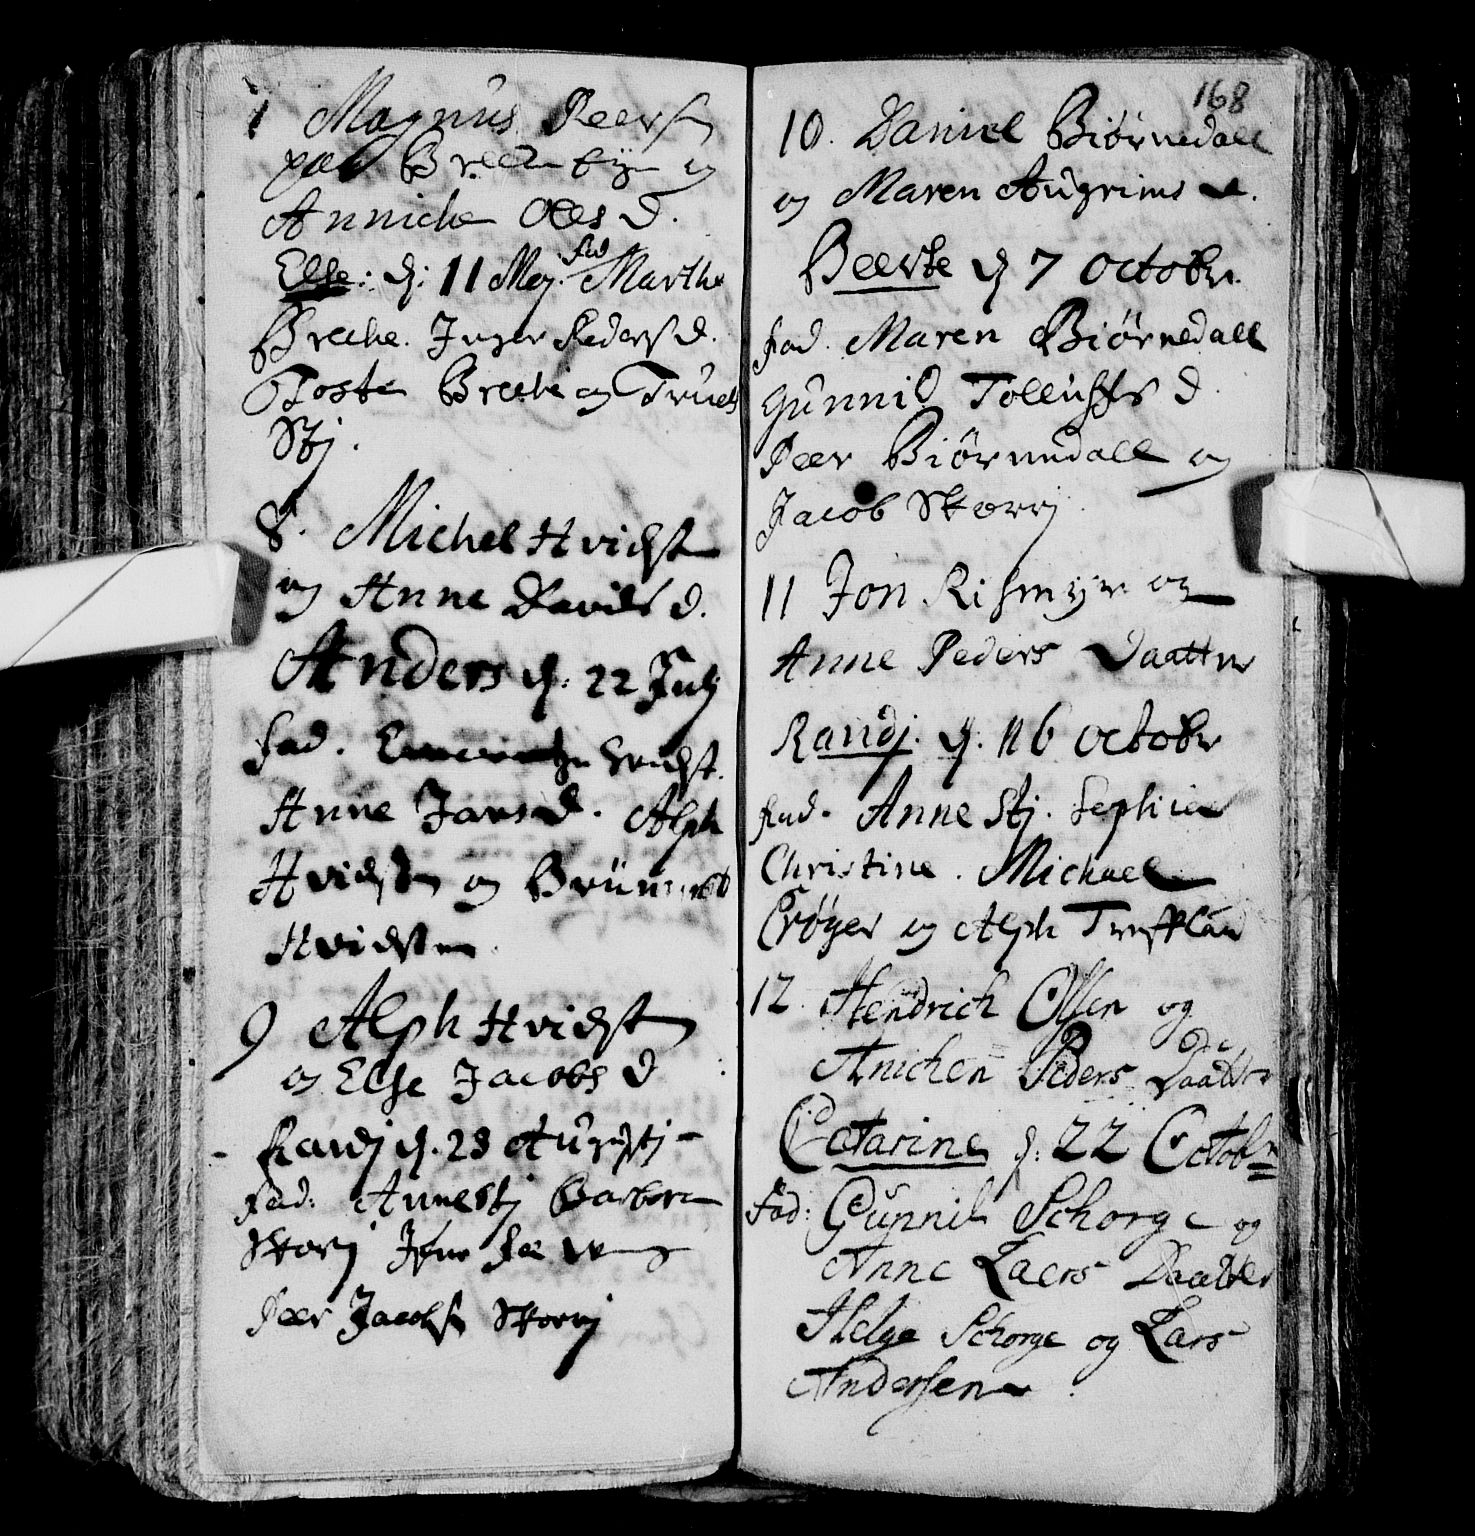 Magnus Peers
og
Anniche Oles d.
Else: d: 11 Mej. fad Marthe
Breche. Inger Peders d.
Toste Breche og Truels
Stj.
8. Michel Hvidst
og Anne Davids d.
Anders d. 22 Julj
fad. Hvidst.
Anne Jans d. Alph
Hvidsten og
Hvidsten
9 Alph Hvidsten
og Else Jacobs d
Randj d. 28 Augustj
fad: Anne Stj Barbora
Skorj
Peer Jacobs Skorj
168
10. Daniel Biørnedall
og Maren Augrims d.
Beerte d 7 octobr.
fad. Maren Biørnedall
Gunnil Tollufs d
Peer Biørnedall og
Jacob Skorj
11 Jon Rismyr og
Anne Peders Daatter
Randj. d. 16 octobr
fad. Anne Stj. Sophie
Christine. Michael
Crøger og Alph
12. Hendrich Olsen og
Anichen Peders Daatter
Catarine d: 22 Octobr
Fad: Gunnil Schorge og
Anne Laers Daatter
Helge Schorge og Lars
Andersen